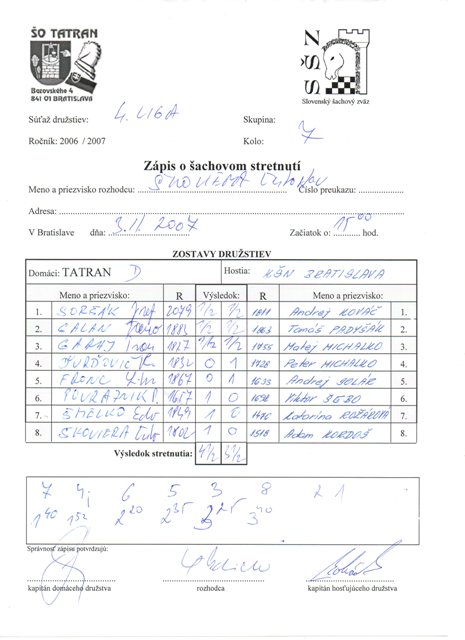 ŠO TATRAN
Bazovského 4
841 01 BRATISLAVA
SŠZ
Slovenský šachový zväz
Súťaž družstiev: 4. LIGA Skupina:
Ročník: 2006 / 2007 Kolo: 7
Zápis o šachovom stretnutí
Meno a priezvisko rozhodcu: Číslo preukazu:
Adresa:
V Bratislave dňa: 3.II.2007 Začiatok o: 15 00 hod.
ZOSTAVY DRUŽSTIEV
Domáci: TATRAN D Hostia: KŠN BRATISLAVA
Meno a priezvisko: R Výsledok: R Meno a priezvisko:
1. SORENK 2079 1/2 1/2 1811 Andrej KOVÁČ 1.
2. GALAN 1/2 1/2 Tomáš PADYŠÁK 2.
3. GARAJ 1827 1/2 1/2 Matej MICHALKO 3.
4. ĎURĎOVIČ 1832 0 1 1728 Peter MICHALKO 4.
5. FRONC 1867 0 1 1633 Andrej 5.
6. POVRAZNIK P. 1657 1 0 Viktor 6.
7. SMELKO 1849 1 0 Katarína 7.
8. SKOVIERA 1802 1 0 1518 Adam KORDOŠ 8.
Výsledok stretnutia: 4 1/2 3 1/2
7 4 6 5 3 8 2 1
1 40 1 52 2 20 2 35 3 25 3 40
Správnosť zápisu potvrdzujú:
kapitán domáceho družstva rozhodca kapitán hosťujúceho družstva